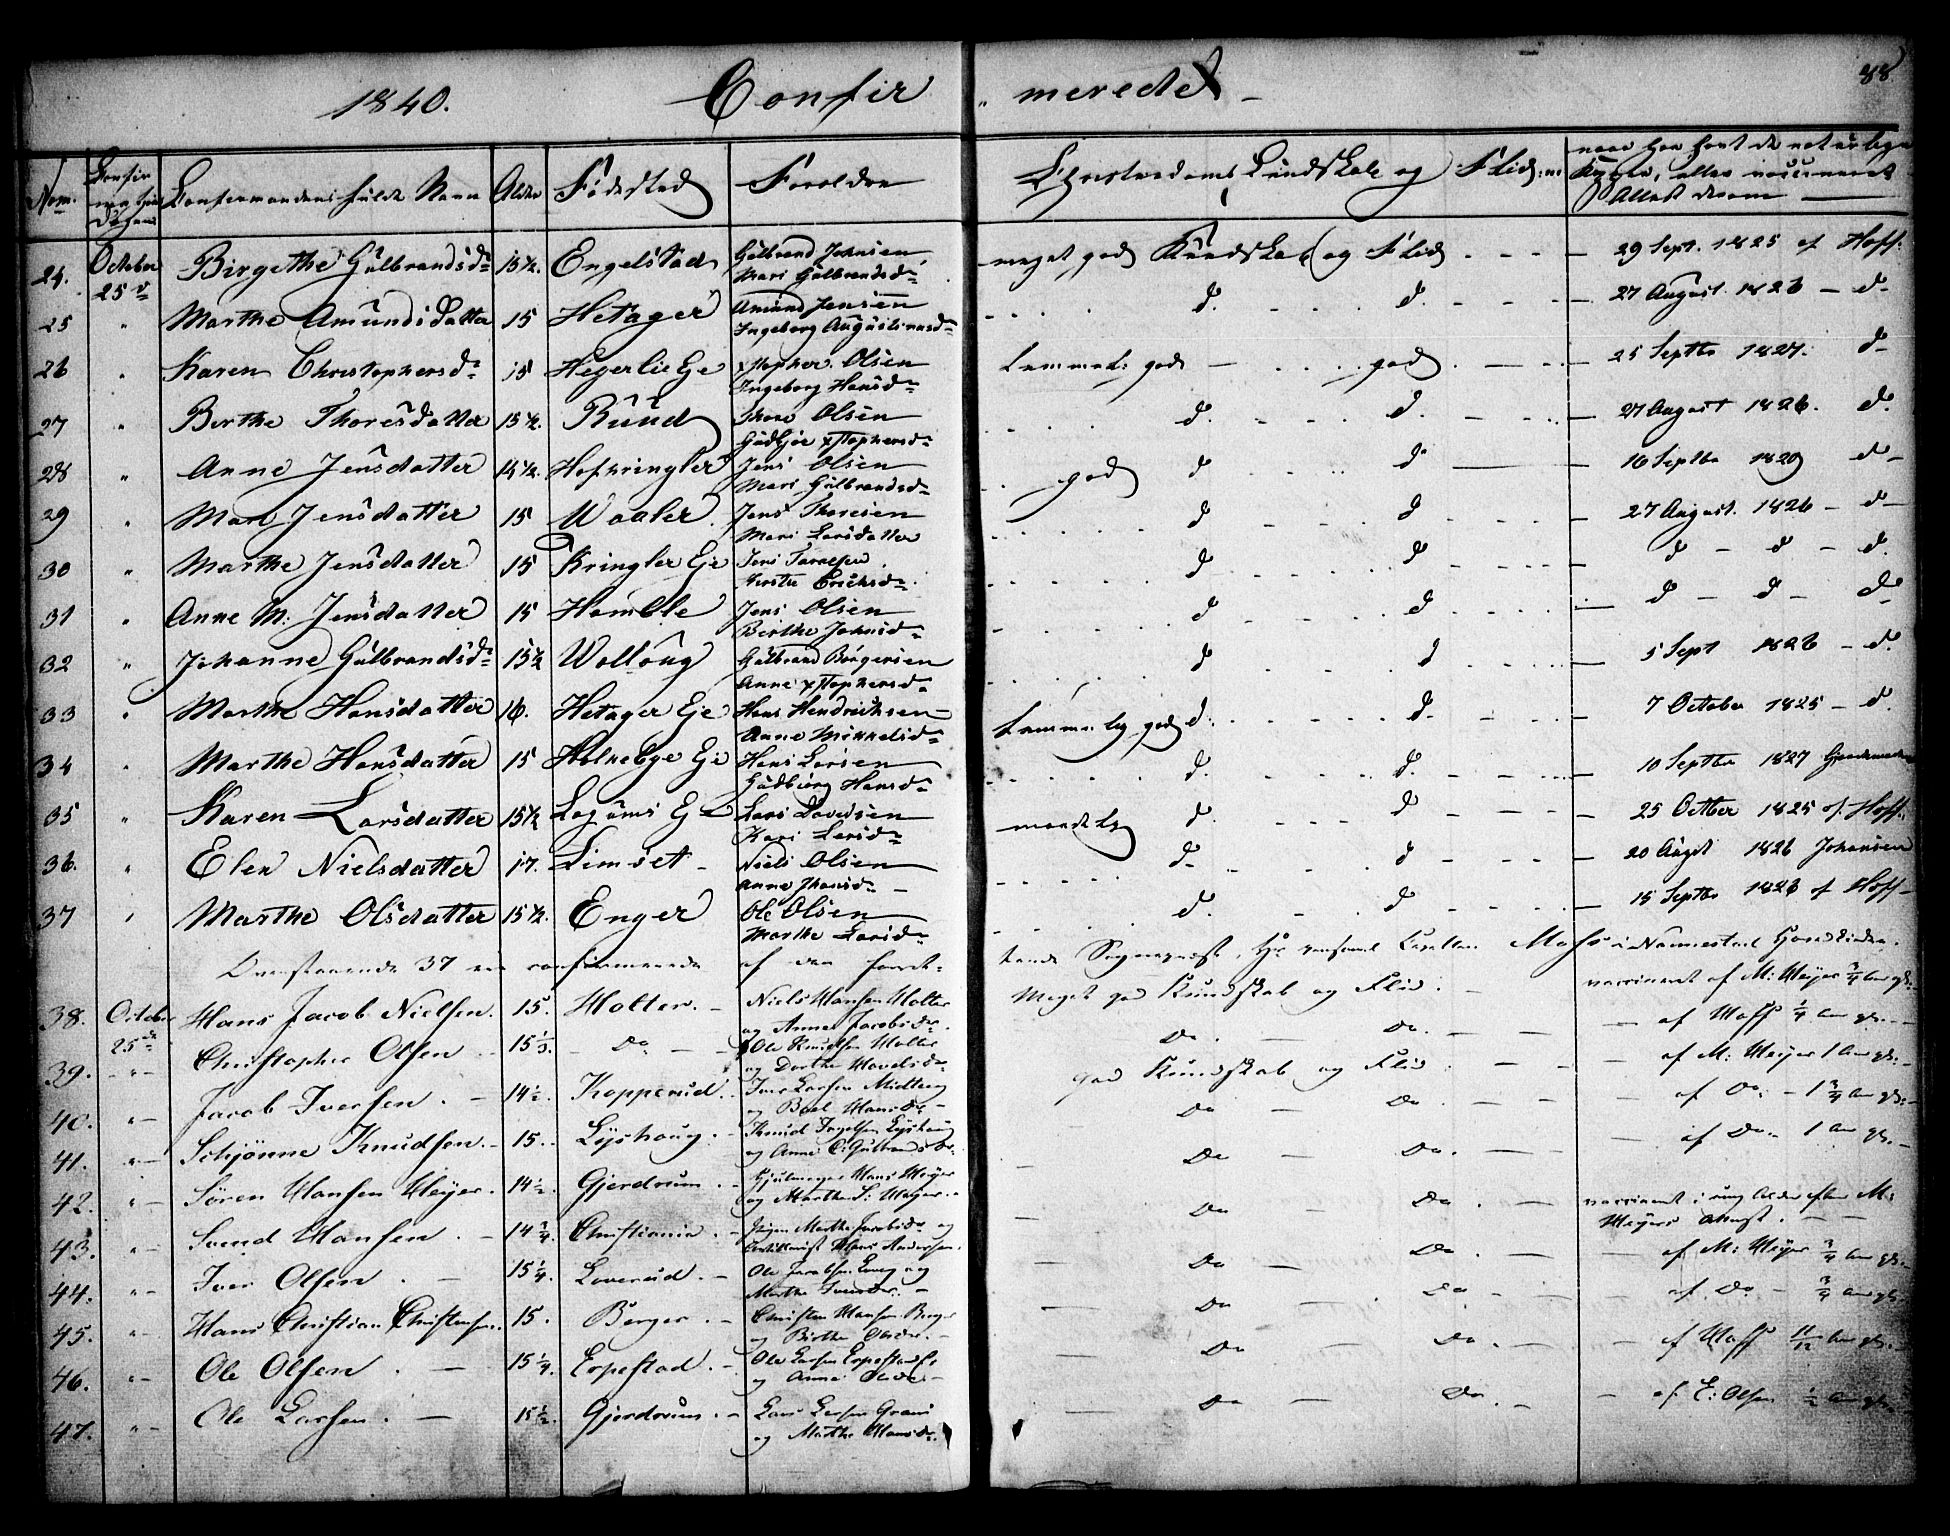 1840. Confir merede 88
Nom. Confirmations Dagen Confirmandens fulde Navn Alder Fødested Forældre Christendoms Kundskab og Flid naar han havt de naturlige Kopper, eller vaccineret Attest derom
24. October 25de Birgethe Gulbrandsd. 15½. Engelstad Gulbrand Johnsen, Mari Gulbrandsd. meget god Kundskab og Flid 29 Sept. 1825 af Hoff.
25 " Marthe Amundsdatter 15 Hetager Amund Jensen Ingeborg Augustinusd. d. d. 27 August 1826 - d.
26 " Karen Christophersd. 15 Hegerlie Eje xstopher Olsen Ingeborg Hansd. temmel: god god 25 Septbr 1827. d.
27 " Berthe Thoresdatter 15½. Rûud Thore Olsen xstophersd. d. d. 27 August 1826. d.
28 " Anne Jensdatter 15½. Hofkringler Jens Olsen Mari Gulbrandsd. god d d 16 Septbr d.
29 " Mari Jensdatter 15 Waaler Jens Thoresen Mari Larsdatter d d 27 August. 1826 - d.
30 " Marthe Jensdatter 15 Kringler Eje Jens Kirstie Erichsd. d d d - d - d.
31 " Anne M: Jensdatter 15 Hamble Jens Olsen Birthe Johnsd. d d d - d - d.
32 " Johanne Gulbrandsd. 15½ Wollaug Gulbrand Børgersen Anne xstophersd. d d 5 Sept 1826 - d.
33 " Marthe Hansdatter 16. Hetager Eje Hans Hendrichsen Anne Mikkelsd. temmelig god d. d. 7 October 1825 - d.
34 " Marthe Hansdatter 15 Holnebye Eje Hans Larsen Gudbiørg Hansd. d. d. 10 Septbr 1827
35 " Karen Larsdatter 15½ Eje Lars Davidsen Kari Larsd. maadelig d. d 25 Octber 1825 af Hoff.
36. " Elen Nielsdatter 17. Limset Niels Olsen Anne d. d 20 Augst 1826 Johansen
37 " Marthe Olsdatter 15½. Enger Ole Olsen Marthe Larsd. d. d 15 Septbr 1826 af Hoff
Ovenstaaende 37 ere confirmerede af den Sogneprest, Hr. Mohr i Nannestad
38. October 25de Hans Jacob Nielsen. 15. Holter. Niels Hansen Holter og Anne Jacobsdr. Meget god Kundskab og Flid. vaccineret af M: Meyer ¾ Aar gl.
39. " Christopher Olsen 15⅓. Do Ole Knudsen Holter og Dorthe Do. Do. af Hoff ¼ Aar gl.
40. " Jacob Iversen. 14½. Kopperud. Iver Larsen Midteng og Boel Hansdr. god Kundskab og Flid. af M: Meyer 1 Aar gl.
41. " Schjønne Knudsen. 15. Lÿshoug. Knud Lÿshoug og Anne C: Gulbrandsdr. Do Do. af Do: 1¾ Aar gl.
42. " Søren Hansen Meÿer. 14½. Gjerdrum. Hans Meÿer og Marthe S: Meÿer. Do Do. af Do. 1 Aar gl.
43. " Svend Hansen 14¾. Christiania. Pigen Marthe Jacobsdr og Hans Andersen. Do Do. vaccineret i ung Alder efter M: Meyers Attest.
44. " Iver Olsen. 15¼. Loverud. Ole Jacobsen og Marthe Do Do. af M: Meÿer ¾ Aar gl.
45. " Hans Christian Christensen. 15. Berger. Christen Hansen Berger og Birthe Olsdr. Do Do. af Do. ¾ Aar gl.
46. " Ole Olsen. 15¼. Erpestad. Ole Larsen Erpestad og Anne Do Do. af Hoff 11/12 Aar gl.
47. " Ole Larsen. 15½. Gjerdrum. Lars Larsen og Marthe Hansdr. Do Do. af E: Olsen ½ Aar gl.